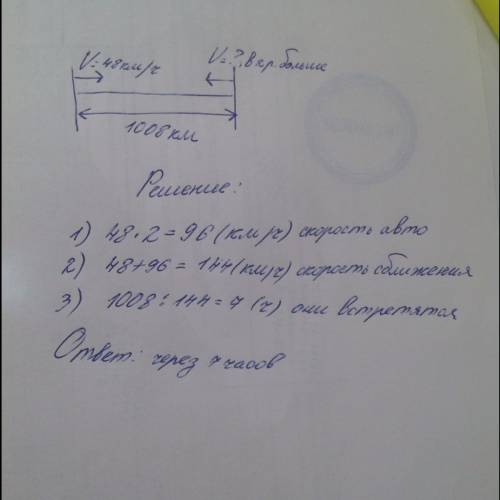 V=48км/ч V=?, в кр. больше
1008км
Решение:
1) 48·2=96(км/ч) скорость авто
2) 48+96=144(км/ч) скорость сближения
3) 1008:144=7(ч) они встретятся
Ответ: через 7 часов